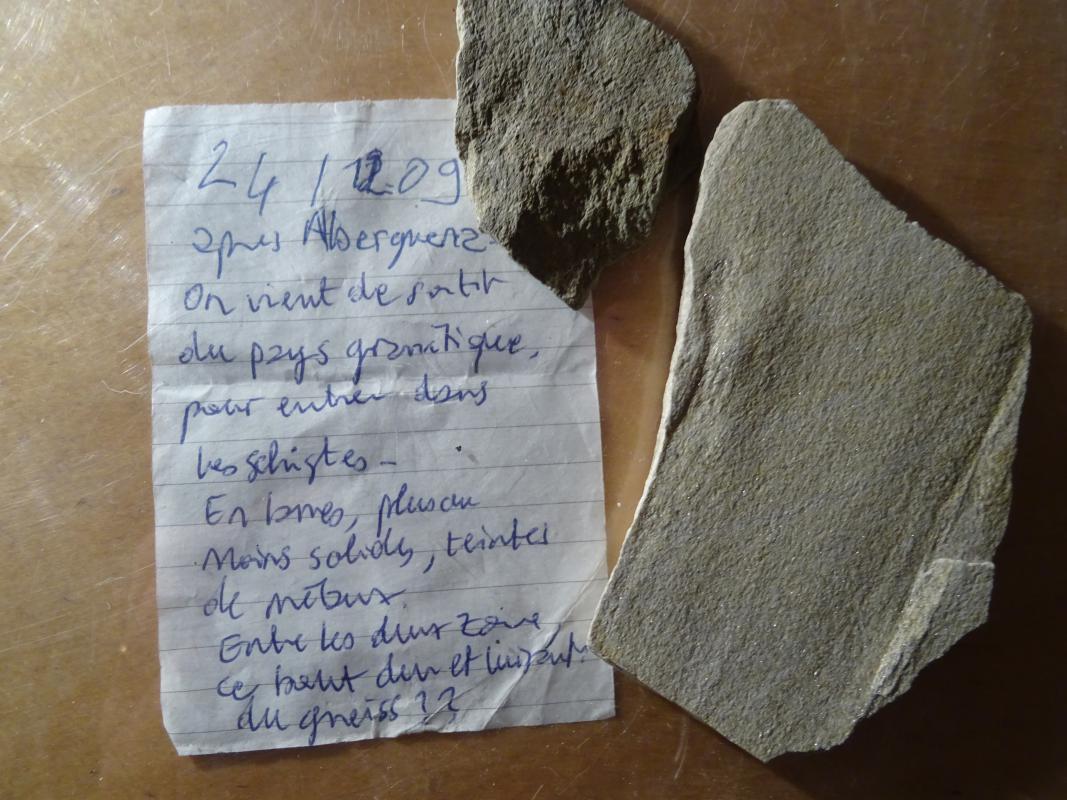 24/12.09
après Alberguer
On vient de sortir
du pays granitique,
pour entrer dans
les schistes –
En lames, plus ou
moins solides, teintes
de métaux.
Entre les deux zone
ce bout dur et luisant.
du gneiss ??